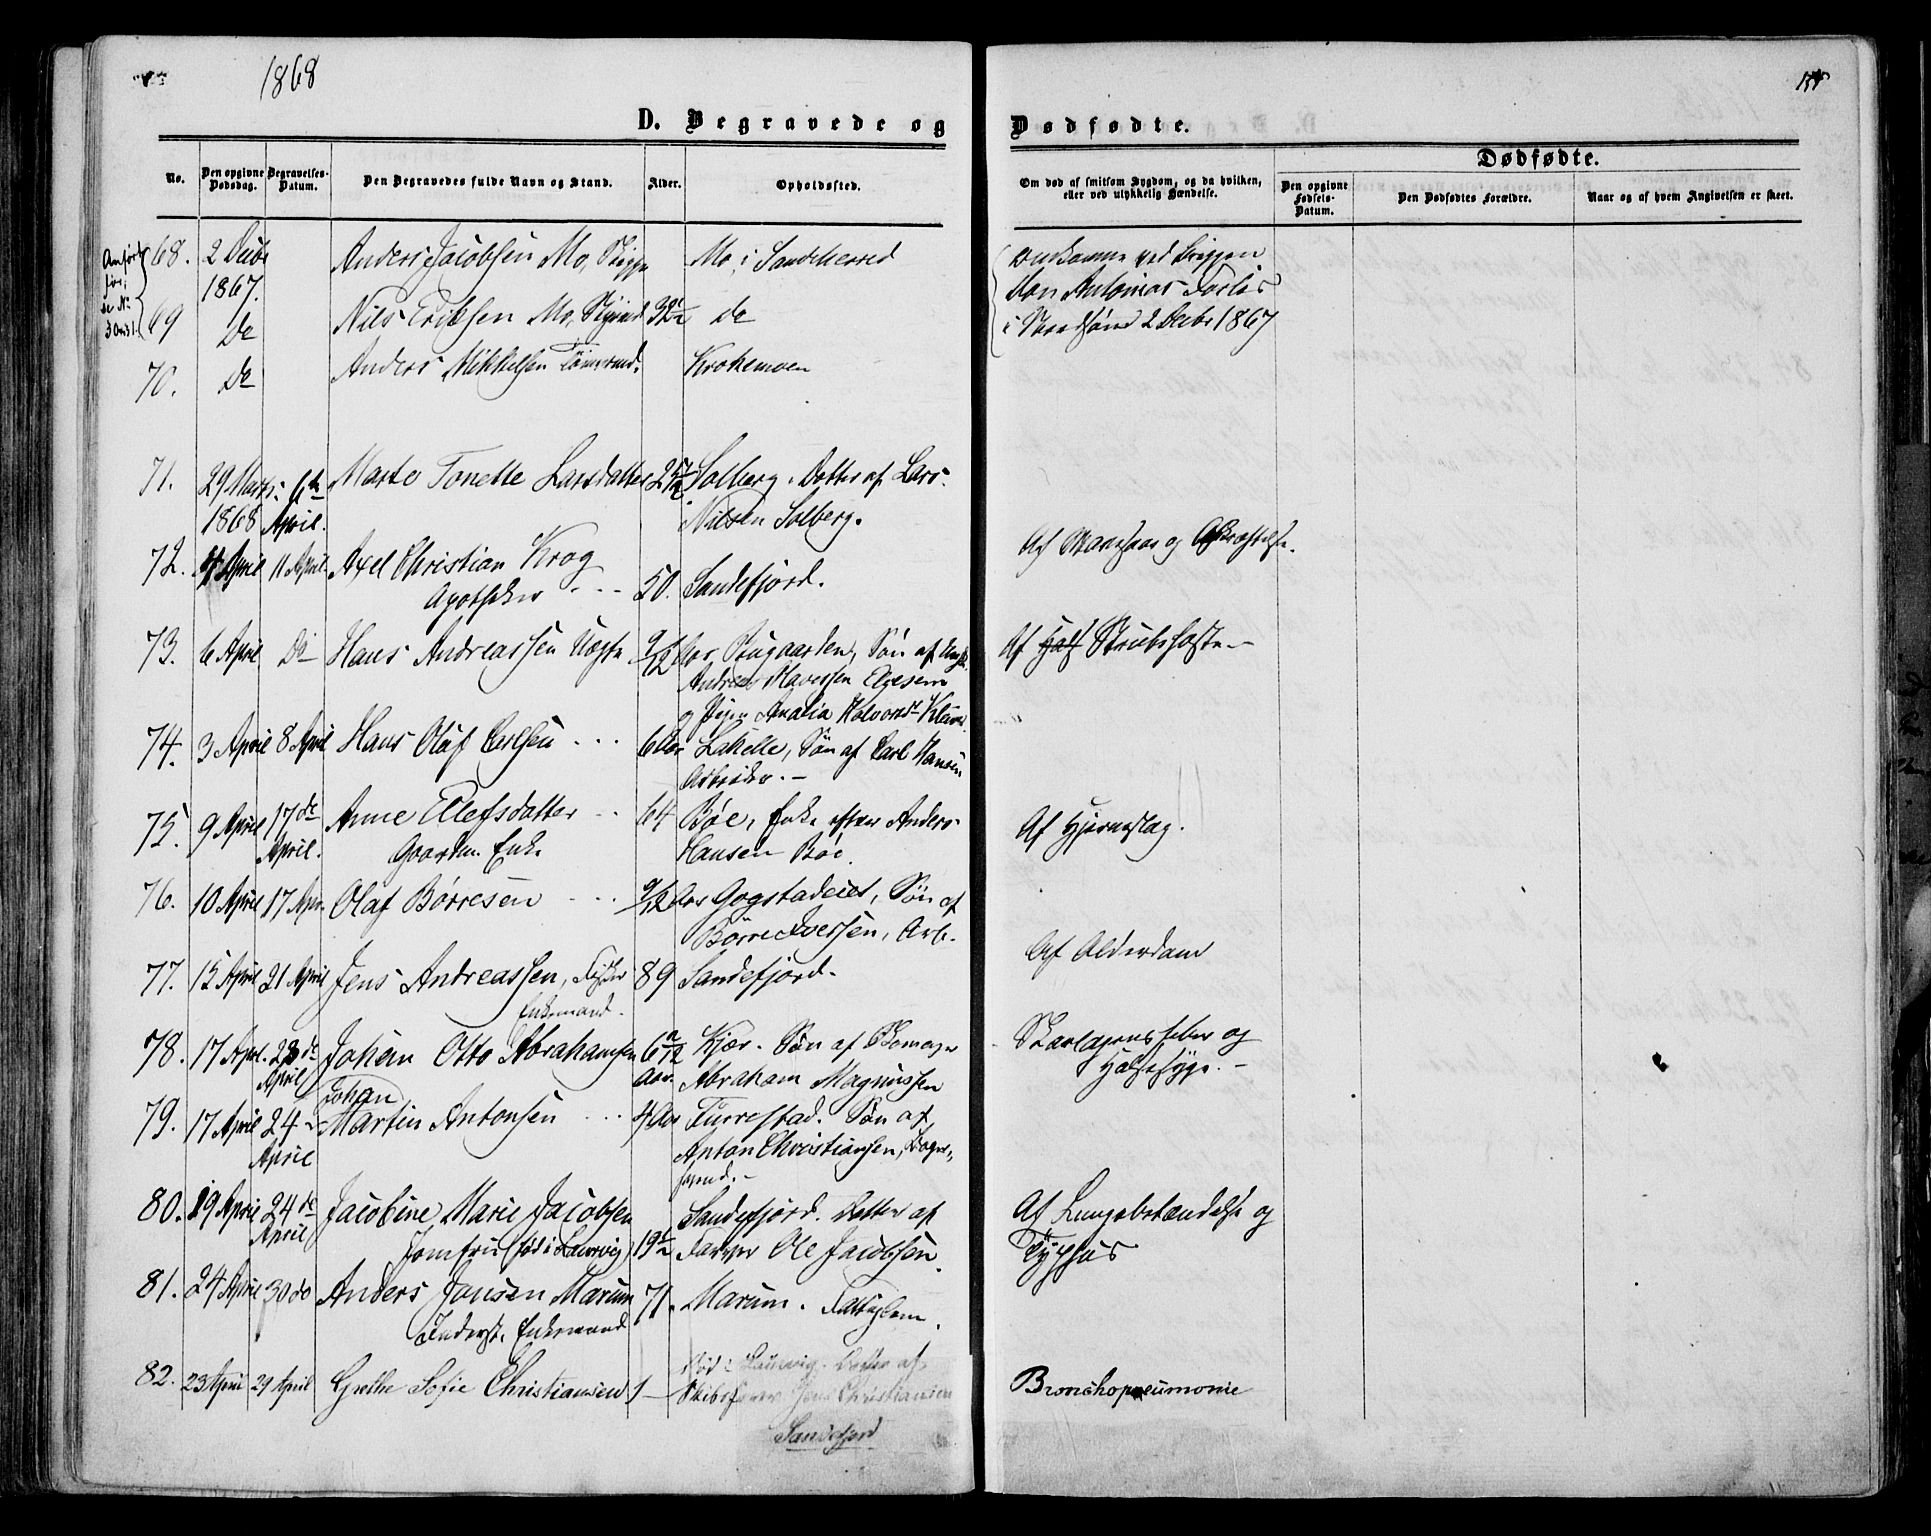 1868
D. Begravede og
Dødfødte.
Dødfødte.
No.
Den opgivne Dødsdag.
Begravelses-Datum.
Den Begravedes fulde Navn og Stand.
Alder.
Opholdssted.
Om død af smitsom Sygdom, og da hvilken, eller ved ulykkelig Hændelse.
Den opgivne Fødsels-Datum.
Den Dødfødtes Forældre.
Naar og af hvem Angivelsen er skeet.
68. 2 Decbr 1867. Anders Jacobsen Mo, Mo i Sandeherred
69 Do Nils Eriksen Mo, Do
i Nordsøen 2 Decbr 1867
70. Do Anders Mikkelsen Krokemoen
71. 29 Marts 1868 6te April. Marte Tonette Larsdatter Solberg. Datter af Lars
Nilsen Solberg.
72. 4 April 11 April Axel Christian Krog
Apotheker 50. Sandefjord.
73. 6 April Do Hans Andreassen Uægte 9/12 Aar Bugaarden, Søn af
Af Hals Strubehoste
og Pigen
74. 3 April 8 April Hans Olaf Carlsen 6 Aar Lahelle, Søn af Carl Hansen
Arbeider.
75. 9 April 17de April. Anne Ellefsdatter 64 Bøe, Enke efter Anders
Gaardm. Enke Hansen Bøe.
Af Hjerneslag.
76. 10 April 17 Apr. Olaf Børresen 9/12 Aar Gogstadeiet, Søn af
Børre Iversen, Arb.
77. 15 April 21 April Jens Andreassen, 89 Sandefjord.
Enkemand.
Af Alderdom
78. 17 Apr. 23de April Johan Otto Abrahamsen Kjær. Søn af
Abraham Magnussen
Skarlagensfeber og
Halssyge.
79. 17 April 24 April Johan
Martin Antonsen 4 Aar Furrestad. Søn af
Anton Christiansen,
80. 19 April 24de April Jacobine Marie Jacobsen Sandefjord. Datter af
Jomfru (fød i Laurvig) Farver Ole Jacobsen.
Af Lungebetændelse og
Typhus
81. 24 April 30 do Anders Jonsen Marum 71. Marum. Fattiglem.
Inderst, Enkemand
82. 23 April 29 April Grethe Sofie Christiansen 1 Fød i Laurvig. Datter af
Skibsfører Jens Christiansen
Sandefjord
Bronchopneumonie